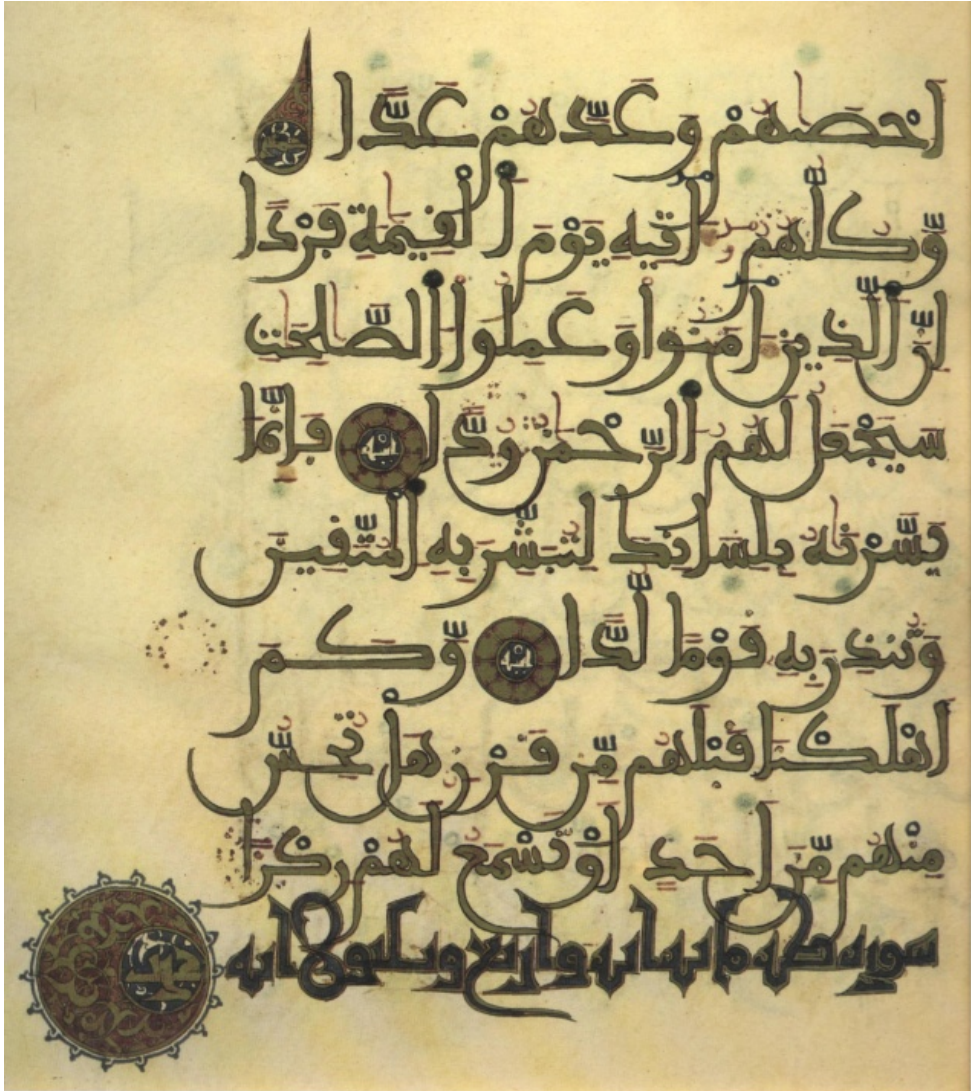 أَحْصَىٰهُمْ وَعَدَّهُمْ عَدًّا
وَكُلُّهُمْ ءَاتِيهِ يَوْمَ ٱلْقِيَٰمَةِ فَرْدًا
إِنَّ ٱلَّذِينَ ءَامَنُوا وَعَمِلُوا ٱلصَّٰلِحَٰتِ
سَيَجْعَلُ لَهُمُ ٱلرَّحْمَٰنُ وُدًّا فَإِنَّمَا
يَسَّرْنَٰهُ بِلِسَانِكَ لِتُبَشِّرَ بِهِ ٱلْمُتَّقِينَ
وَتُنذِرَ بِهِ قَوْمًا لُّدًّا وَكَمْ
أَهْلَكْنَا قَبْلَهُم مِّن قَرْنٍ هَلْ تُحِسُّ
مِنْهُم مِّنْ أَحَدٍ أَوْ تَسْمَعُ لَهُمْ رِكْزًا
سورة طه مائة اية واربع وثلثون اية